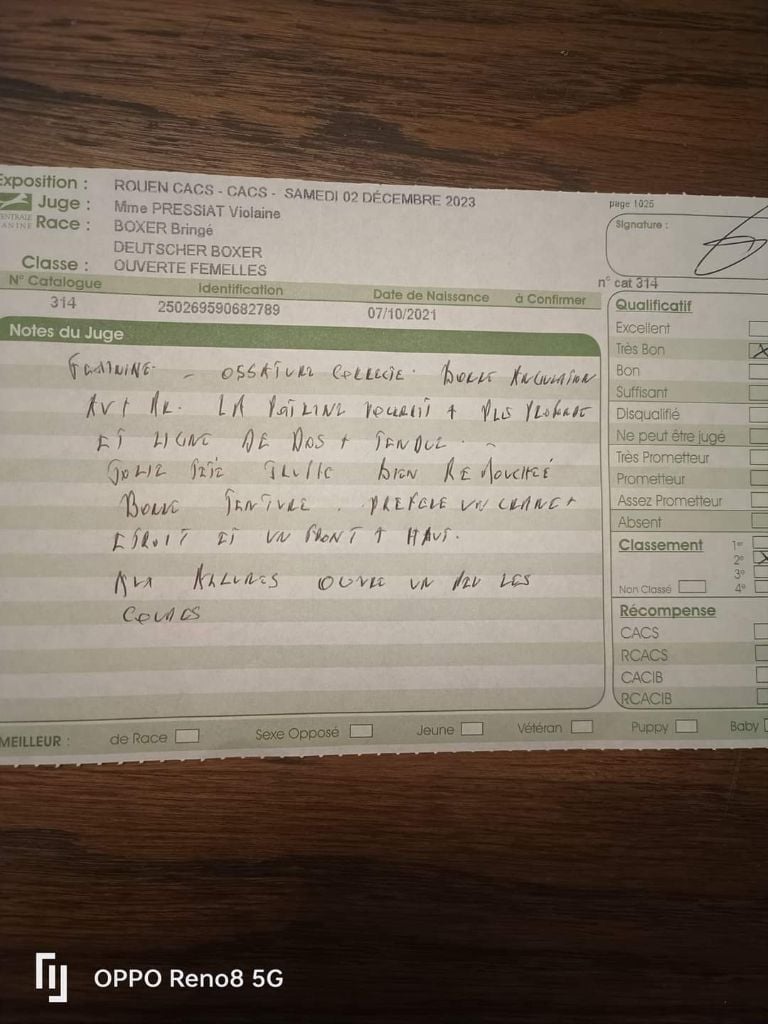 Exposition : ROUEN CACS - CACS - SAMEDI 02 DÉCEMBRE 2023
Juge : Mme PRESSIAT Violaine
CENTRALE CANINE
Race : BOXER Bringé
DEUTSCHER BOXER
Classe : OUVERTE FEMELLES
page 1025
Signature :
n° cat 314
N° Catalogue Identification Date de Naissance à Confirmer
314 250269590682789 07/10/2021
Notes du Juge
FEMININE - OSSATURE CORRECTE. BONNE ANGULATION
AV + AR. LA POITRINE POURRAIT + PLUS PROFONDE
ET LIGNE DE DOS + TENDUE.
JOLIE TÊTE TRUFFE BIEN REMOUCHÉE
BONNE DENTURE. PREFERE UN CRANE +
ETROIT ET UN FRONT + HAUT.
AUX ALLURES OUVRE UN PEU LES
COUDES
Qualificatif
Excellent
Très Bon X
Bon
Suffisant
Disqualifié
Ne peut être jugé
Très Prometteur
Prometteur
Assez Prometteur
Absent
Classement 1er
2e X
3e
Non Classé 4e
Récompense
CACS
RCACS
CACIB
RCACIB
MEILLEUR : de Race Sexe Opposé Jeune Vétéran Puppy Baby
OPPO Reno8 5G